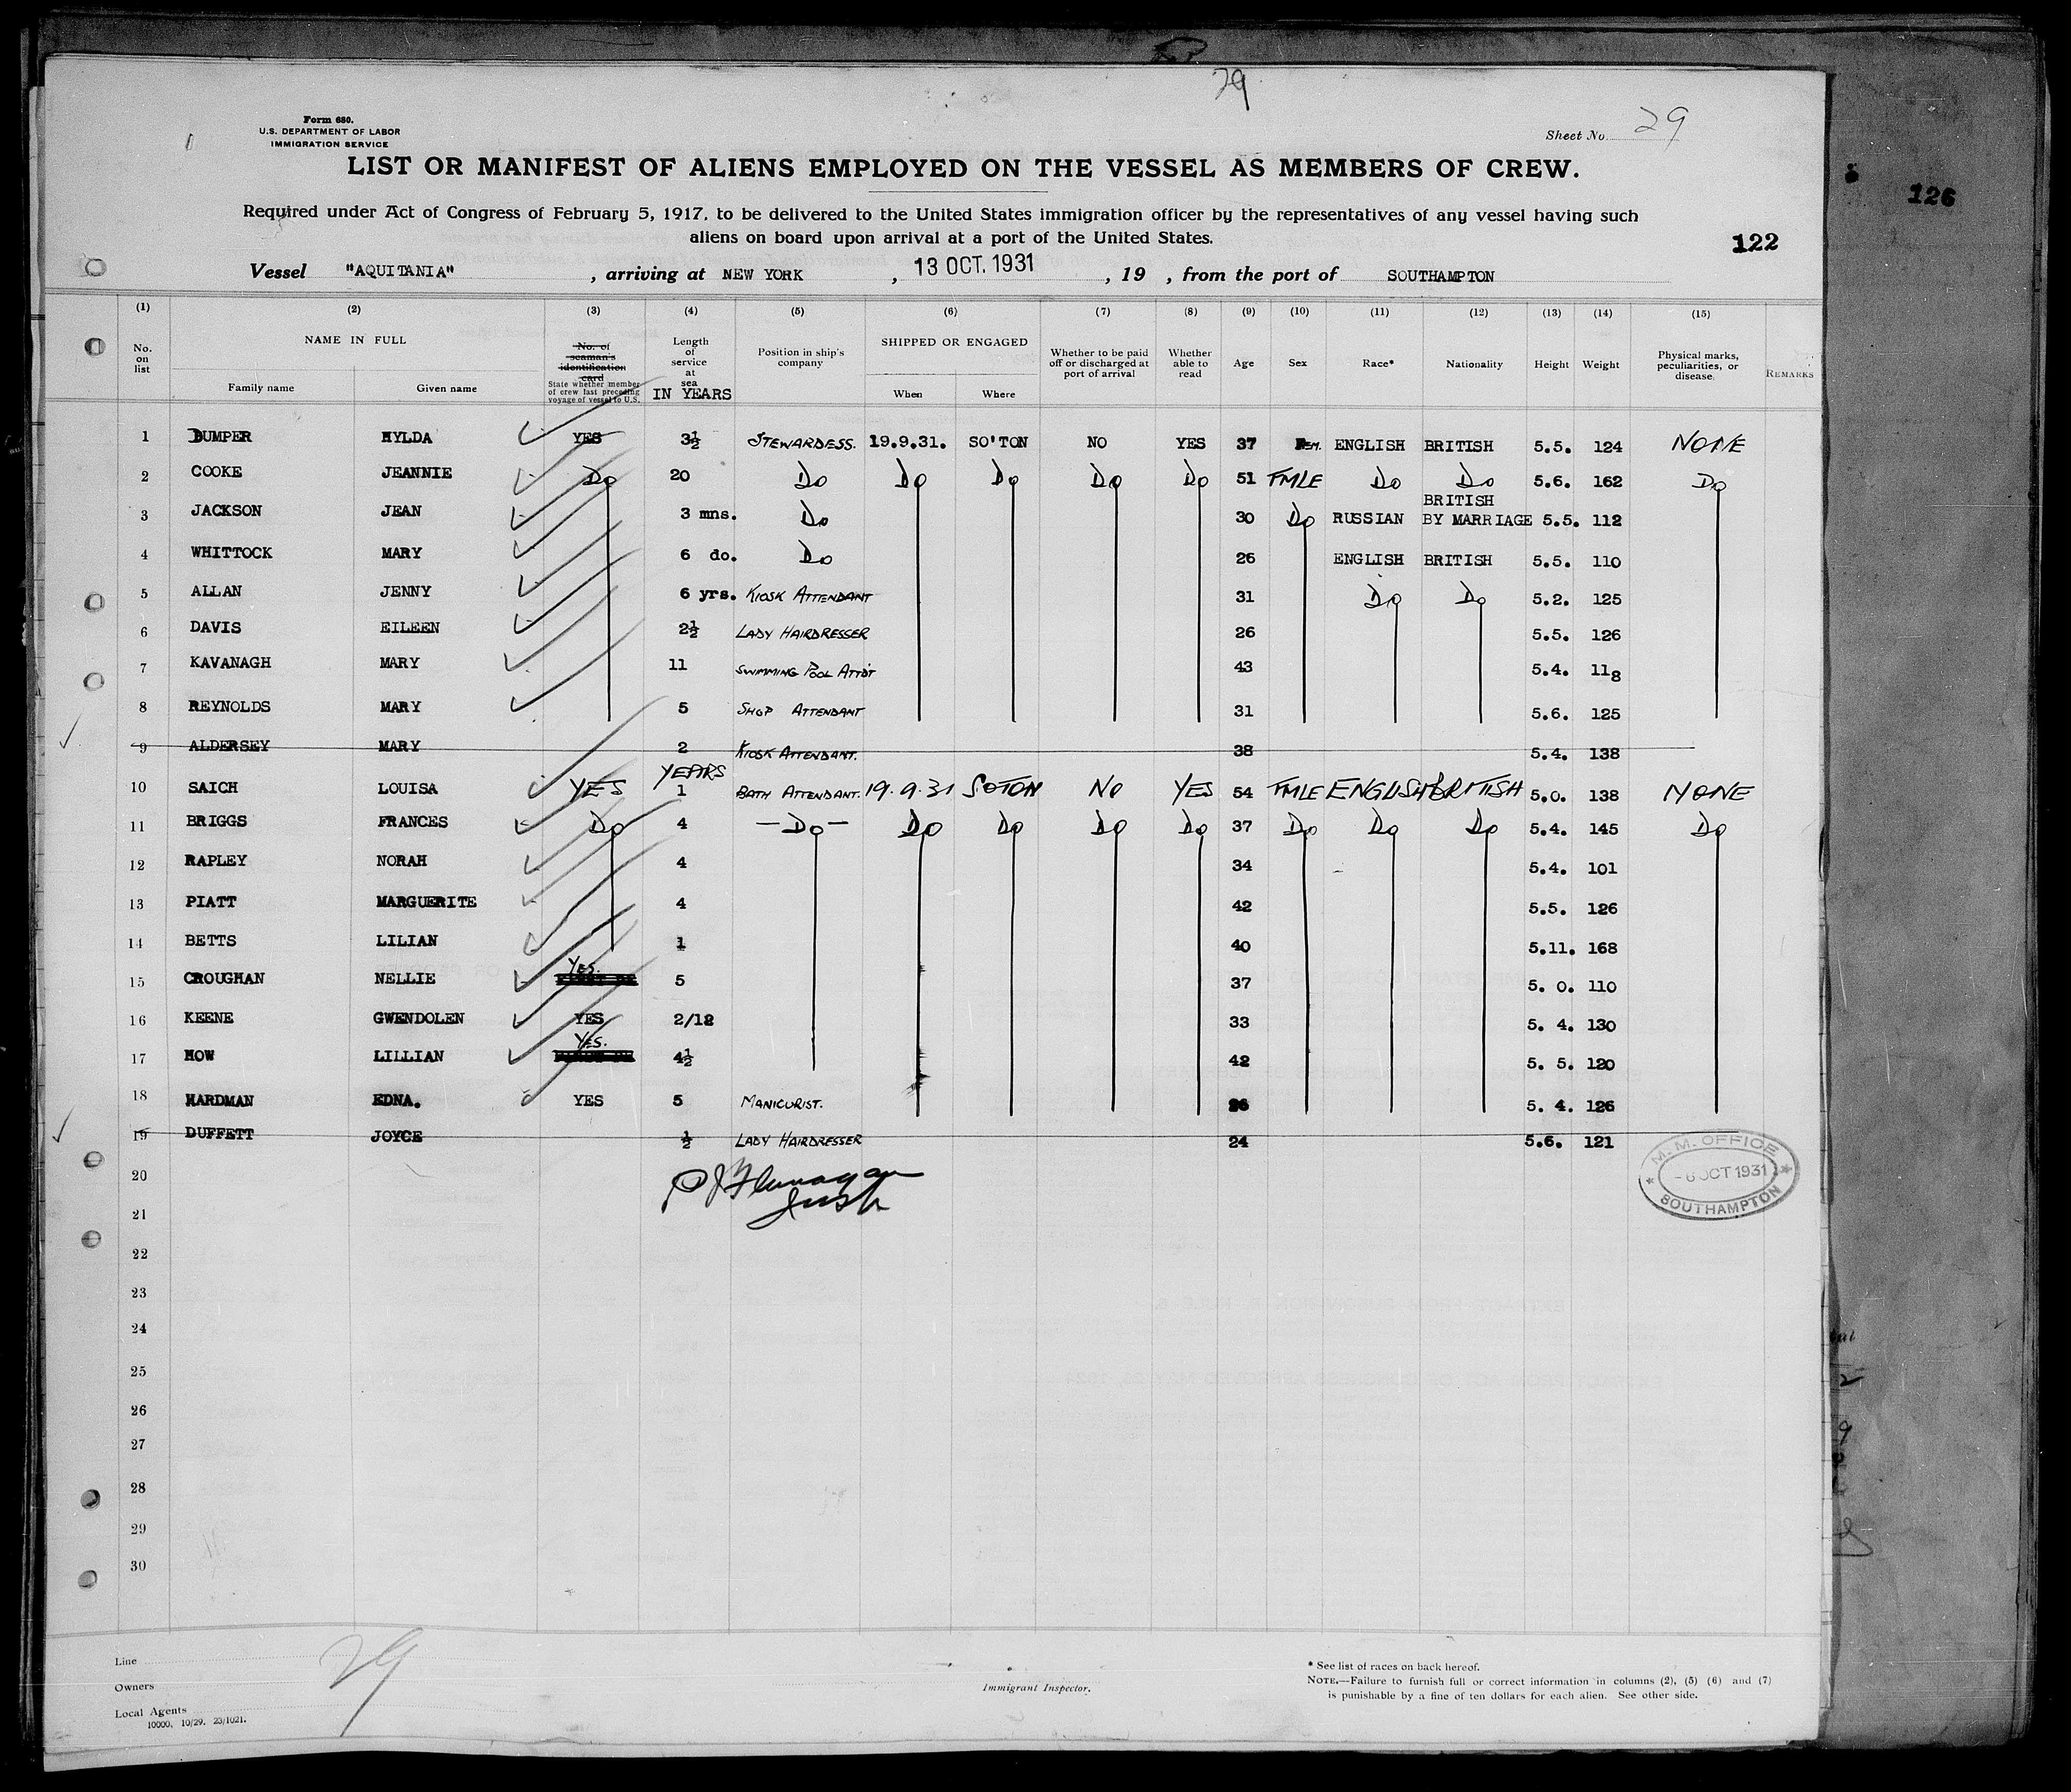 29
Form 680.
U.S. DEPARTMENT OF LABOR
IMMIGRATION SERVICE
Sheet No. 29
LIST OR MANIFEST OF ALIENS EMPLOYED ON THE VESSEL AS MEMBERS OF CREW.
126
Required under Act of Congress of February 5, 1917, to be delivered to the United States immigration officer by the representatives of any vessel having such
aliens on board upon arrival at a port of the United States.
122
Vessel "AQUITANIA" , arriving at NEW YORK , 13 OCT. 1931 , 19 , from the port of SOUTHAMPTON
(1) (2) (3) (4) (5) (6) (7) (8) (9) (10) (11) (12) (13) (14) (15)
No. on list
NAME IN FULL
Family name Given name
No. of seaman's identification card
State whether member of crew last preceding voyage of vessel to U.S.
Length of service at sea
IN YEARS
Position in ship's company
SHIPPED OR ENGAGED
When Where
Whether to be paid off or discharged at port of arrival
Whether able to read
Age Sex Race* Nationality Height Weight
Physical marks, peculiarities, or disease
REMARKS
1 BUMPER HYLDA YES 3½ STEWARDESS. 19.9.31. SO'TON NO YES 37 FEM. ENGLISH BRITISH 5.5. 124 NONE
2 COOKE JEANNIE Do 20 Do Do Do Do Do 51 FMLE Do Do 5.6. 162 Do
3 JACKSON JEAN 3 mns. Do 30 Do RUSSIAN BRITISH BY MARRIAGE 5.5. 112
4 WHITTOCK MARY 6 do. Do 26 ENGLISH BRITISH 5.5. 110
5 ALLAN JENNY 6 yrs. KIOSK ATTENDANT 31 Do Do 5.2. 125
6 DAVIS EILEEN 2½ LADY HAIRDRESSER 26 5.5. 126
7 KAVANAGH MARY 11 SWIMMING POOL ATTDT 43 5.4. 118
8 REYNOLDS MARY 5 SHOP ATTENDANT 31 5.6. 125
9 ALDERSEY MARY 2 KIOSK ATTENDANT. 38 5.4. 138
YEARS
10 SAICH LOUISA YES 1 BATH ATTENDANT. 19.9.31 SOTON NO YES 54 FMLE ENGLISH BRITISH 5.0. 138 NONE
11 BRIGGS FRANCES Do 4 — Do — Do Do Do Do 37 Do Do Do 5.4. 145 Do
12 RAPLEY NORAH 4 34 5.4. 101
13 PIATT MARGUERITE 4 42 5.5. 126
14 BETTS LILIAN 1 40 5.11. 168
15 CROUGHAN NELLIE YES. 5 37 5. 0. 110
16 KEENE GWENDOLEN YES 2/12 33 5. 4. 130
17 HOW LILLIAN YES. 4½ 42 5. 5. 120
18 HARDMAN EDNA. YES 5 MANICURIST. 26 5. 4. 126
19 DUFFETT JOYCE ½ LADY HAIRDRESSER 24 5.6. 121
M. M. OFFICE
- 6 OCT 1931
SOUTHAMPTON
20
P J Flanagan
21
22
23
24
25
26
27
28
29
30
Line
Owners
Local Agents
10000, 10/29. 23/1021.
29
Immigrant Inspector.
* See list of races on back hereof.
NOTE.—Failure to furnish full or correct information in columns (2), (5) (6) and (7)
is punishable by a fine of ten dollars for each alien. See other side.